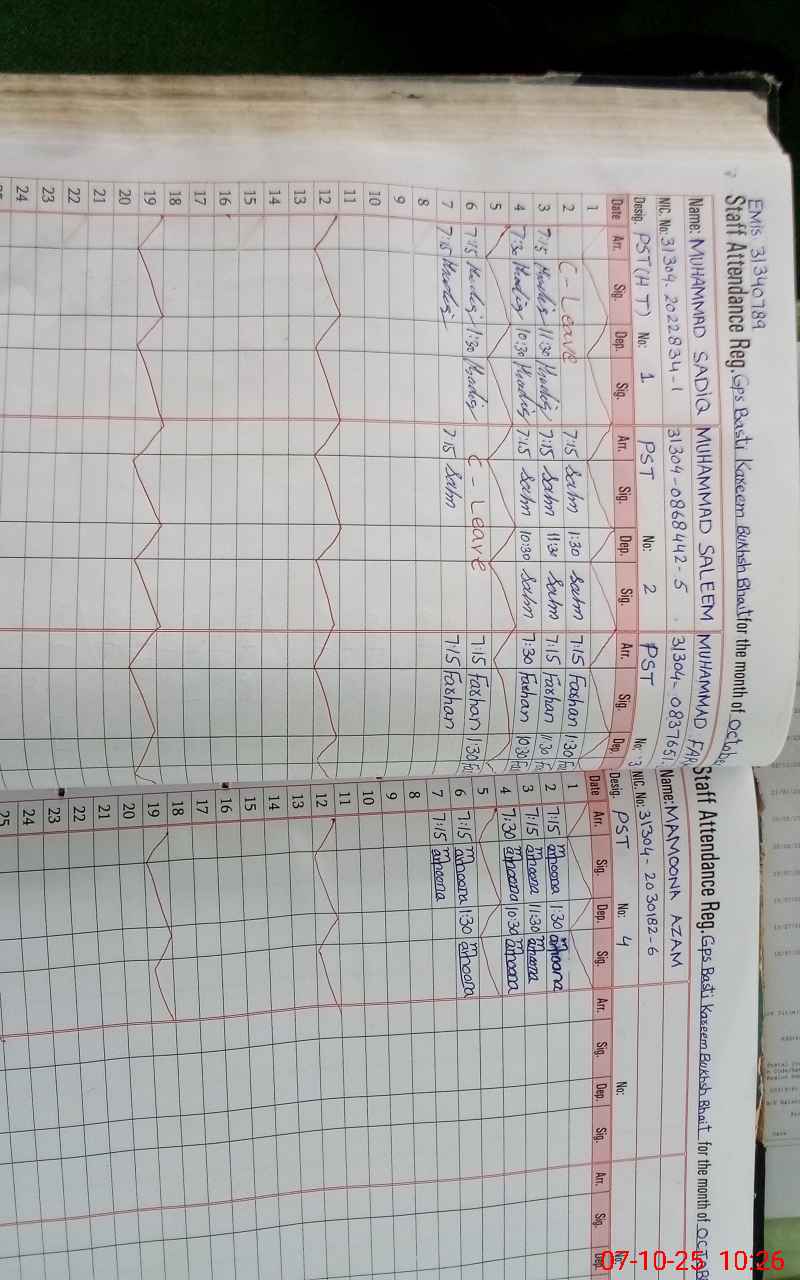 EMIS 31340789
Staff Attendance Reg. Gps Basti Kareem Bukhsh Bhait for the month of October
Name: MUHAMMAD SADIQ MUHAMMAD SALEEM MUHAMMAD FAR
NIC. No: 31304-2022834-1 31304-0868442-5 31304-0837651
Desig. PST(HT) No: 1 PST No: 2 PST No: 3
Date Arr. Sig. Dep. Sig. Arr. Sig. Dep. Sig. Arr. Sig. Dep.
1
2 C-Leave 7:15 Salm 1:30 Salm 7:15 Farhan 1:30
3 7:15 11:30 7:15 Salm 11:30 Salm 7:15 Farhan 11:30
4 7:30 10:30 7:15 Salm 10:30 Salm 7:30 Farhan 10:30
5
6 7:15 1:30 C-Leave 7:15 Farhan 1:30
7 7:15 7:15 Salm 7:15 Farhan
8
9
10
11
12
13
14
15
16
17
18
19
20
21
22
23
24
Staff Attendance Reg. Gps Basti Kareem Bukhsh Bhait for the month of OCTOB
Name: MAMOONA AZAM
NIC. No: 31304-2030182-6
Desig. PST No: 4 No:
Date Arr. Sig. Dep. Sig. Arr. Sig. Dep. Sig. Arr. Sig. Dep.
1
2 7:15 mamoona 1:30 mamoona
3 7:15 mamoona 11:30 mamoona
4 7:30 mamoona 10:30 mamoona
5
6 7:15 mamoona 1:30 mamoona
7 7:15 mamoona
8
9
10
11
12
13
14
15
16
17
18
19
20
21
22
23
24
25
07-10-25 10:26